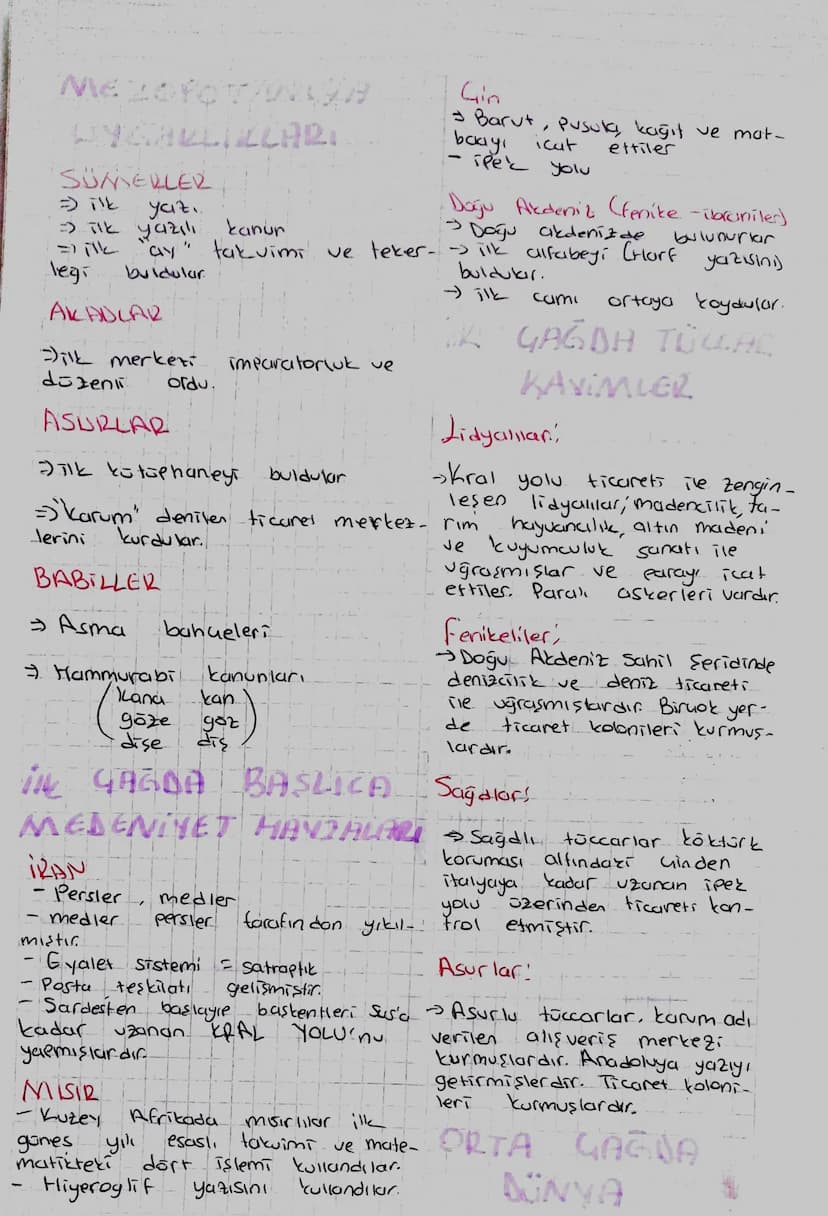 MEZOPOTAMYA
UYGARLIKLARI
SÜMERLER
⇒ ilk yazı
⇒ ilk yazılı kanun
⇒ ilk "ay" takvimi ve teker-
leği buldular
AKADLAR
⇒ ilk merkezi imparatorluk ve
düzenli ordu.
ASURLAR
⇒ ilk kütüphaneyi buldular
⇒ "karum" denilen ticaret merkez-
lerini kurdular.
BABİLLER
⇒ Asma bahçeleri
⇒ Hammurabi kanunları
(kana kan
göze göz
dişe diş)
İLK ÇAĞDA BAŞLICA
MEDENİYET HAVZALARI
İRAN
- Persler, medler
- medler persler tarafından yıkıl-
mıştır.
- Eyalet sistemi = satraplık
- Posta teşkilatı gelişmiştir.
- Sardesten başlayıp başkentleri Sus'a
kadar uzanan KRAL YOLU'nu
yapmışlardır.
MISIR
- Kuzey Afrikada mısırlılar ilk
güneş yılı esaslı takvimi ve mate-
matikteki dört işlemi kullandılar.
- Hiyeroglif yazısını kullandılar.
Çin
⇒ Barut, pusula, kağıt ve mat-
baayı icat ettiler
- ipek yolu
Doğu Akdeniz (fenike - ibraniler)
→ Doğu akdenizde bulunurlar
→ ilk alfabeyi (Harf yazısını)
buldular.
→ ilk camı ortaya koydular.
İLK ÇAĞDA TÜCCAR
KAVİMLER
Lidyalılar;
→ Kral yolu ticareti ile zengin-
leşen lidyalılar, madencilik, ta-
rım hayvancılık, altın madeni
ve kuyumculuk sanatı ile
uğraşmışlar ve parayı icat
ettiler. Paralı askerleri vardır.
Fenikeliler;
→ Doğu Akdeniz Sahil Şeridinde
denizcilik ve deniz ticareti
ile uğraşmışlardır. Birçok yer-
de ticaret kolonileri kurmuş-
lardır.
Soğdlar:
→ Soğdlı tüccarlar köktürk
koruması altındaki çinden
italyaya kadar uzanan ipek
yolu üzerinden ticareti kon-
trol etmiştir.
Asurlar:
→ Asurlu tüccarlar, karum adı
verilen alışveriş merkezi
kurmuşlardır. Anadoluya yazıyı
getirmişlerdir. Ticaret koloni-
leri kurmuşlardır.
ORTA ÇAĞDA
DÜNYA